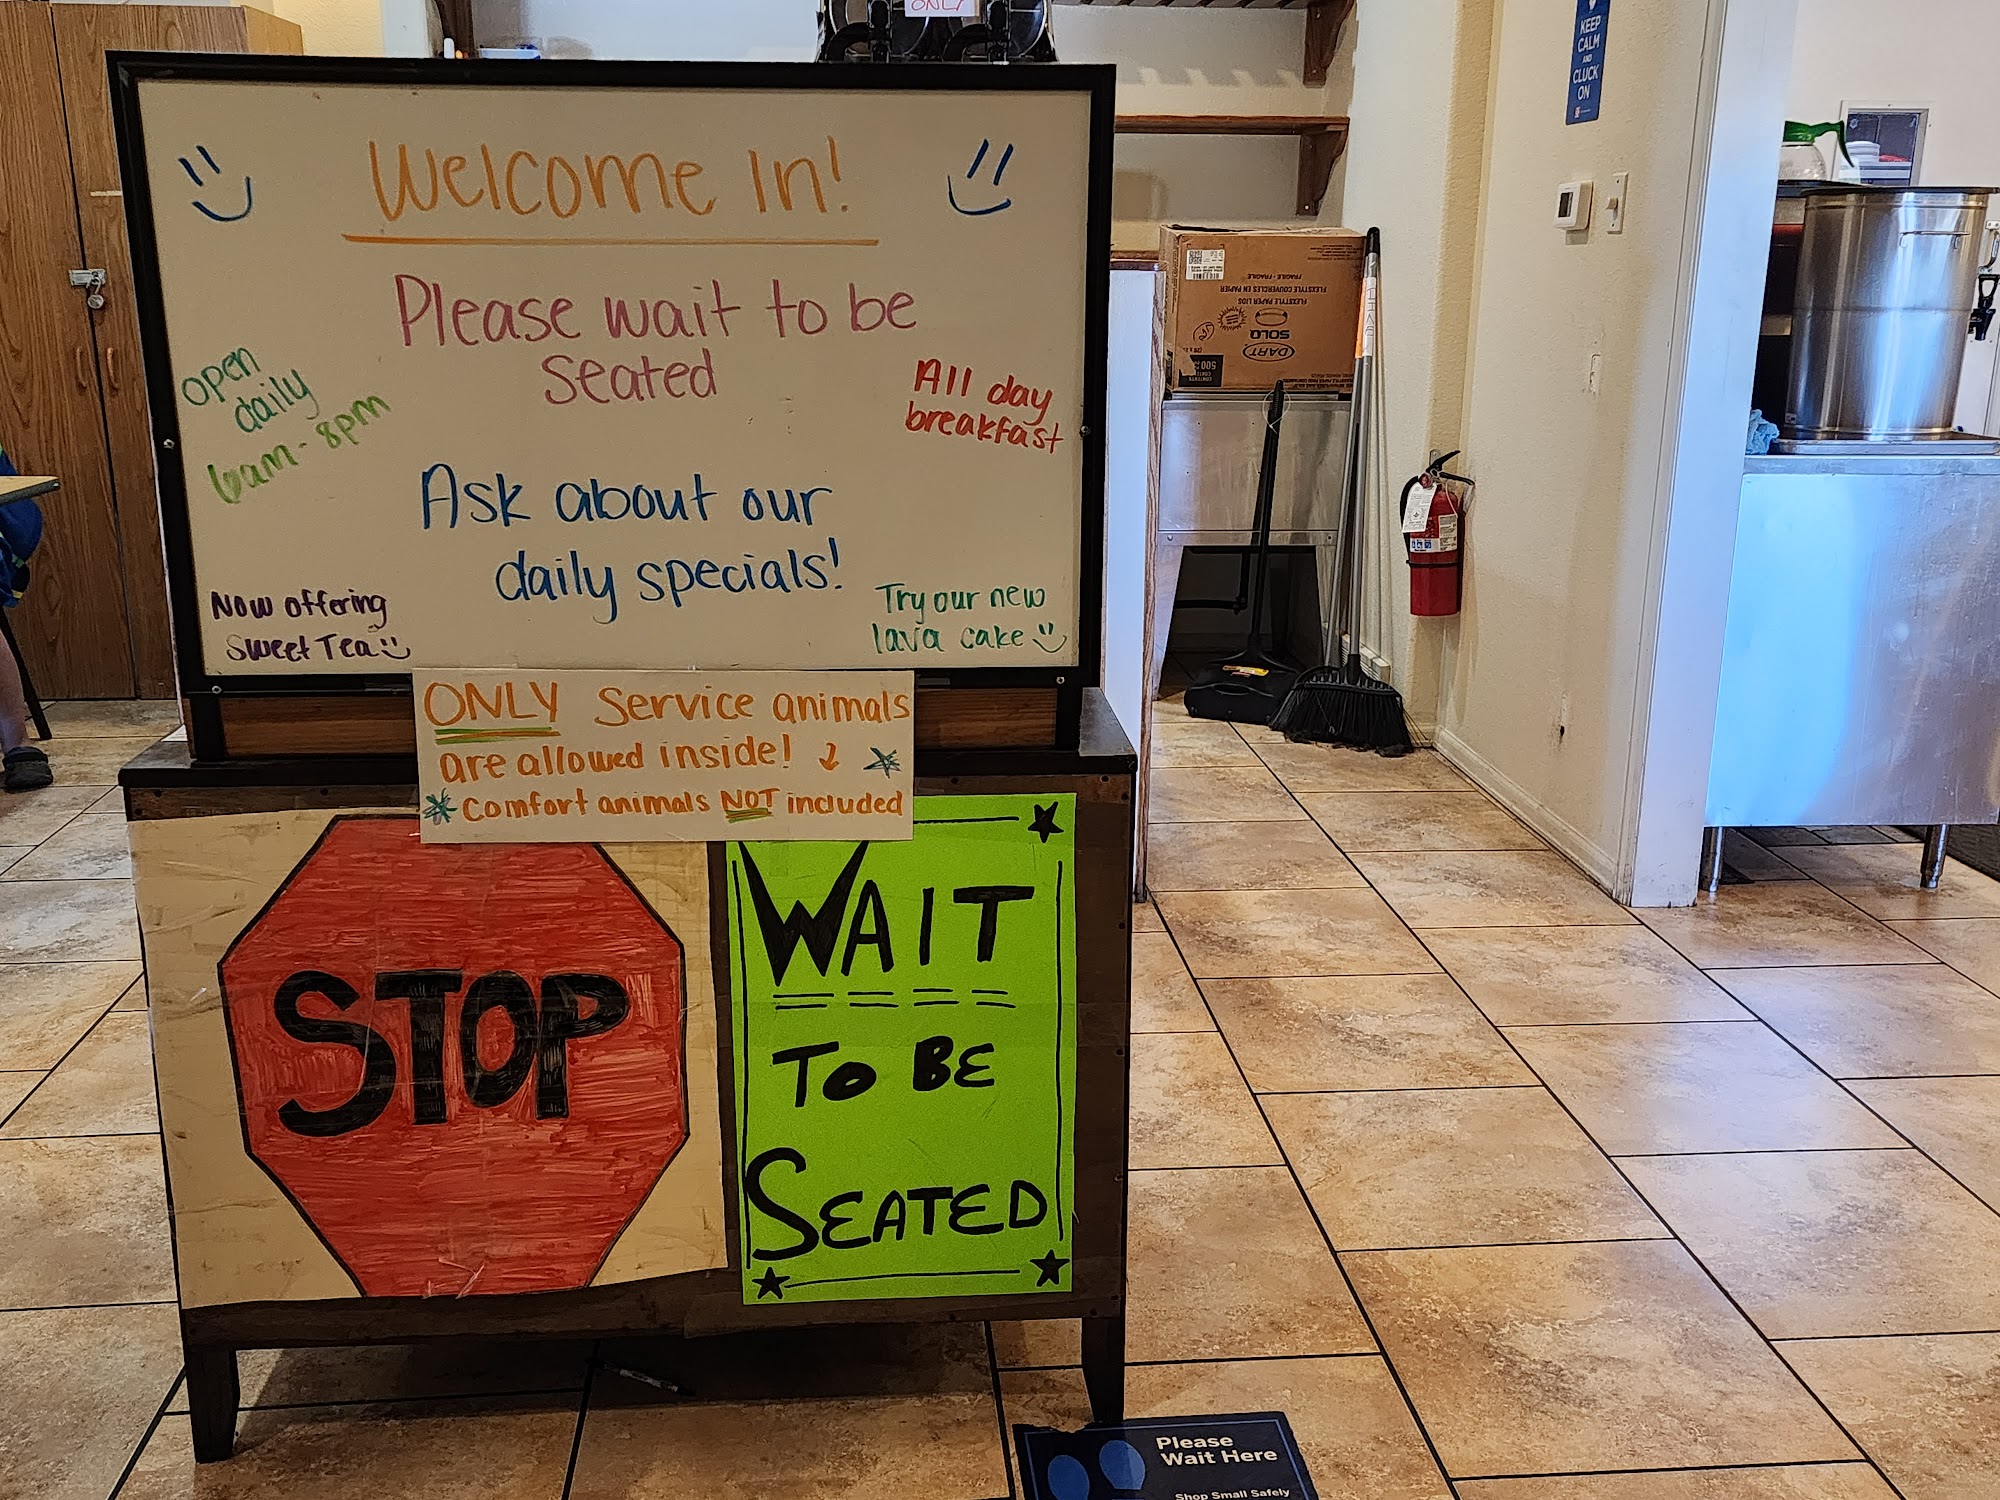 ONLY
KEEP
CALM
AND
CLUCK
ON
Welcome In!
Please wait to be
seated
open
daily
6am - 8pm
All day
breakfast
Ask about our
daily specials!
Now offering
Sweet Tea
Try our new
lava cake
ONLY Service animals
are allowed inside!
Comfort animals NOT included
STOP
WAIT
TO BE
SEATED
FRAGILE • FRAGILE
FLEXSTYLE COUVERCLES EN PAPIER
FLEXSTYLE PAPER LIDS
SOLO
DART
500
Please
Wait Here
Shop Small Safely